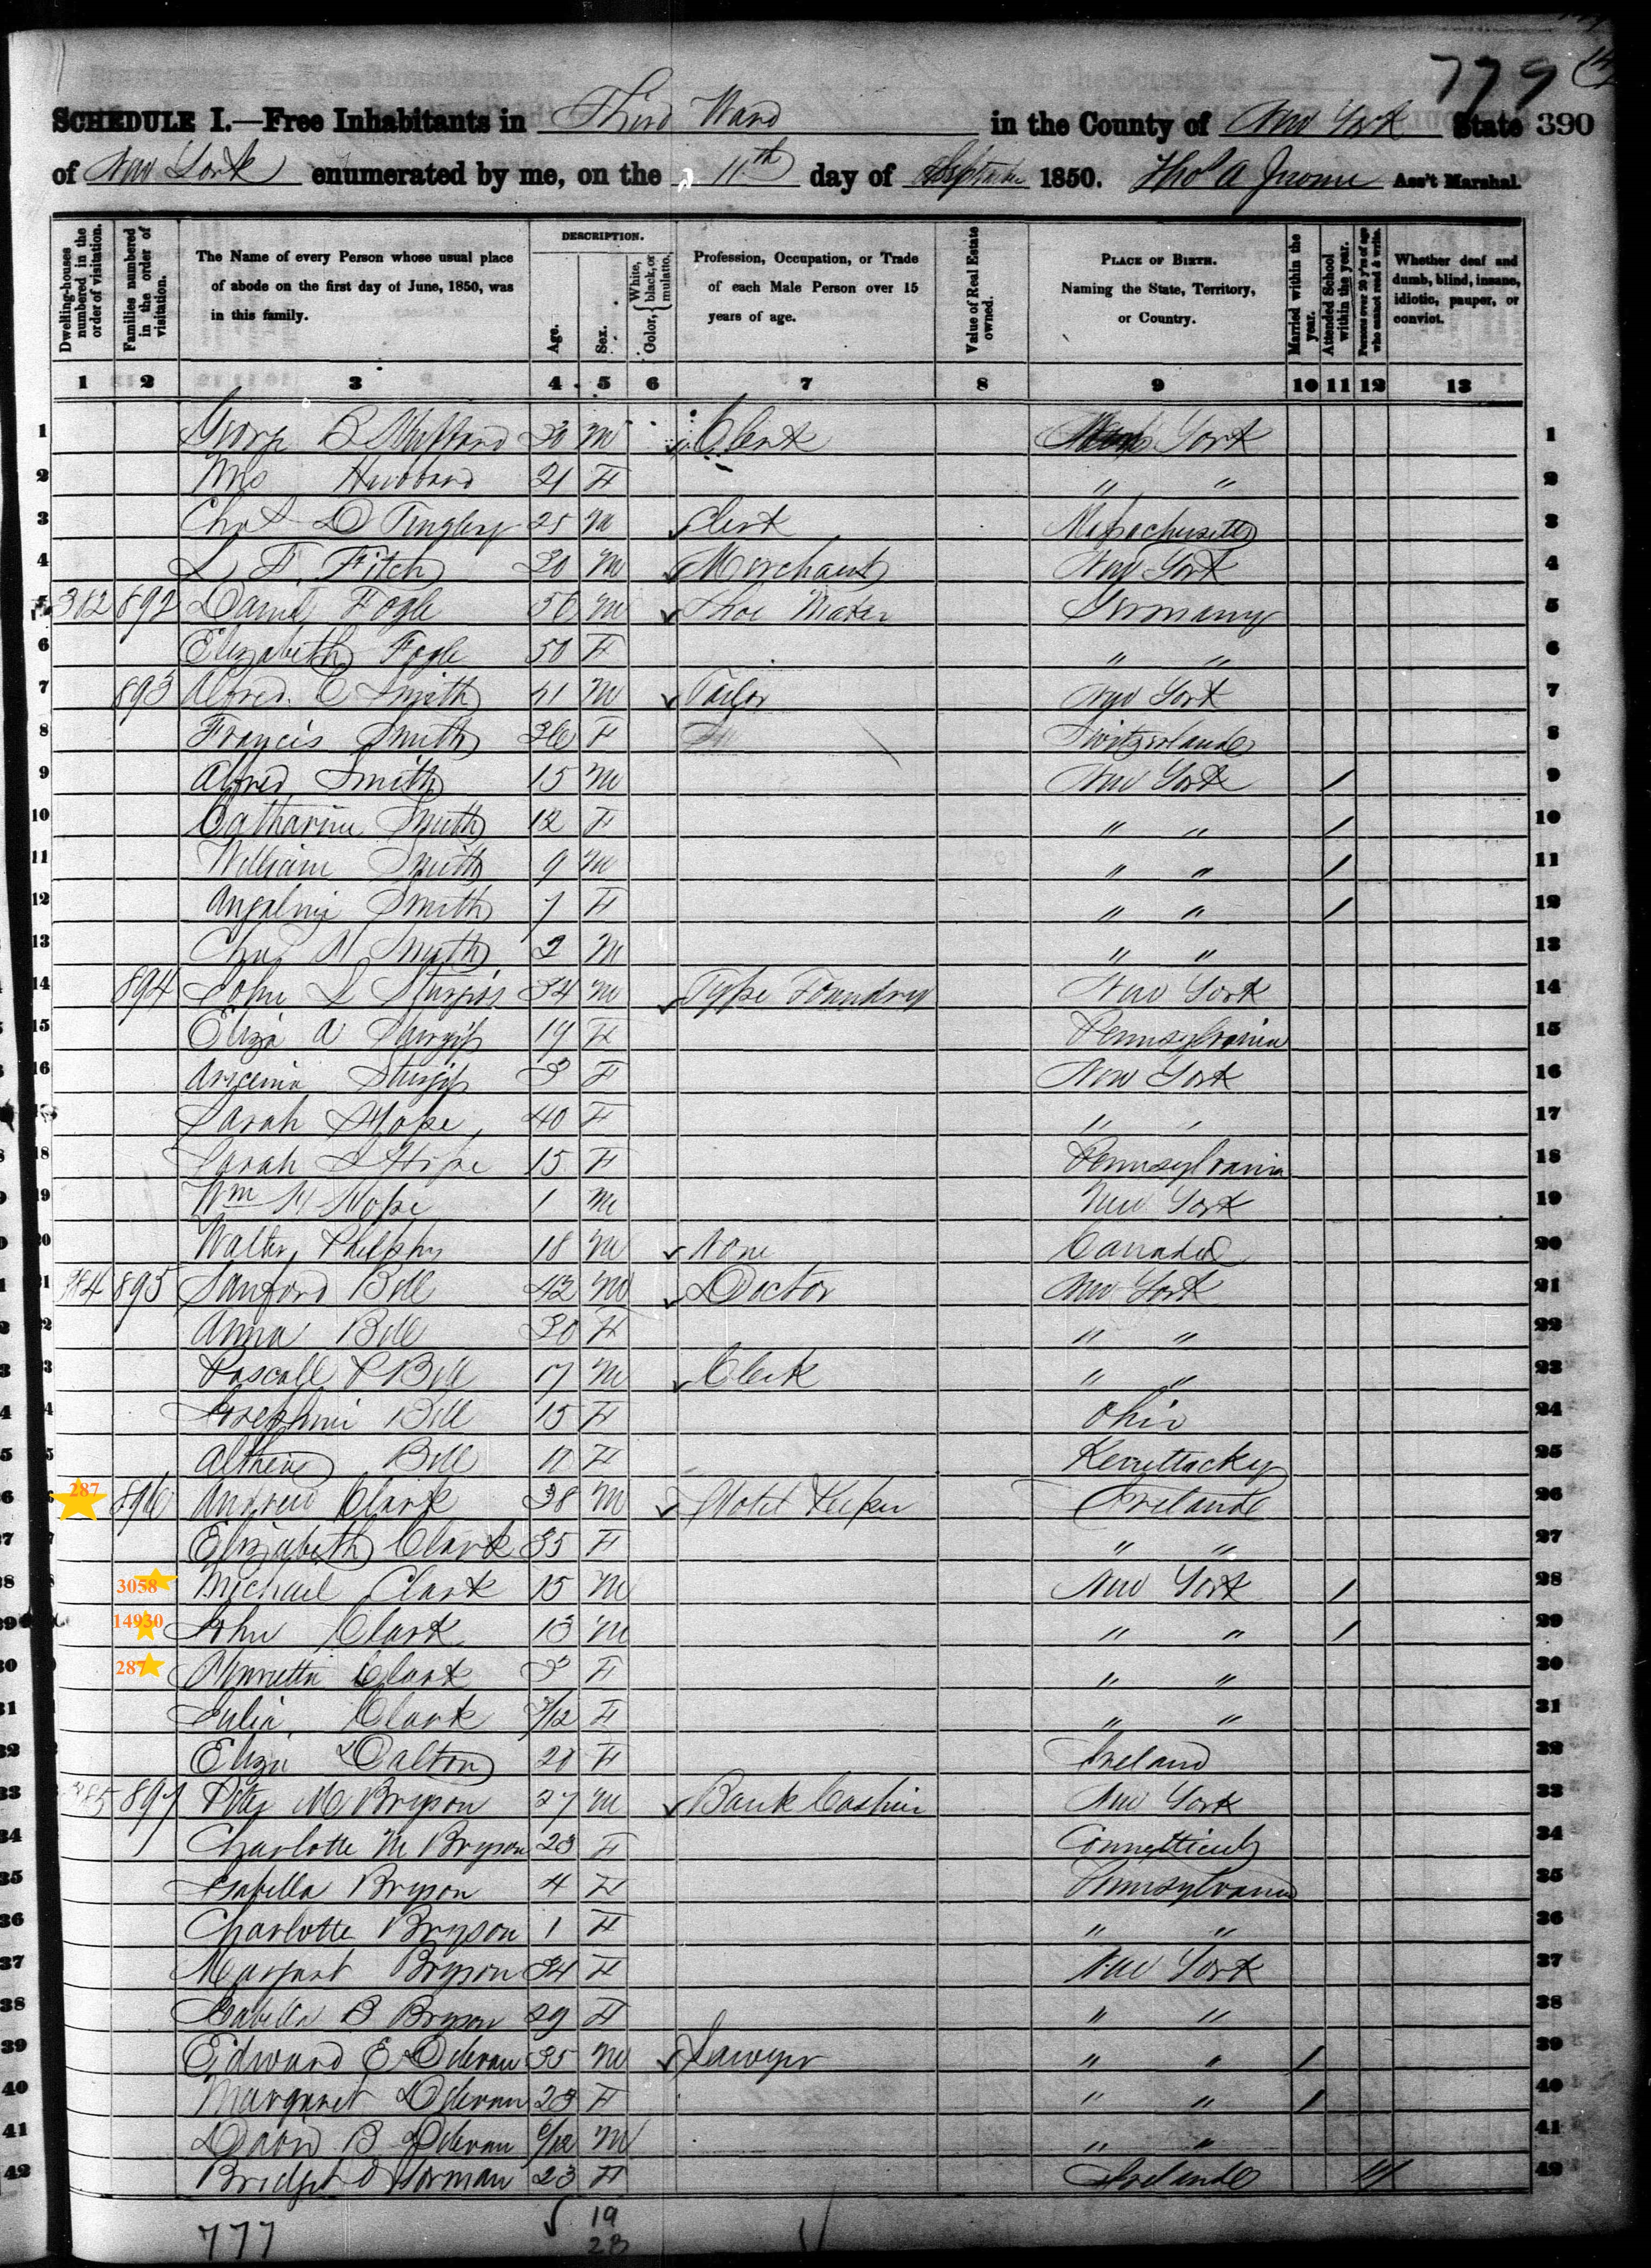 779
SCHEDULE I.—Free Inhabitants in Third Ward in the County of New York State 390
of New York enumerated by me, on the 11th day of September 1850. Thos A Jerome Ass't Marshal.
Dwelling-houses numbered in the order of visitation.
Families numbered in the order of visitation.
The Name of every Person whose usual place of abode on the first day of June, 1850, was in this family.
DESCRIPTION.
Age.
Sex.
Color, White, black, or mulatto.
Profession, Occupation, or Trade of each Male Person over 15 years of age.
Value of Real Estate owned.
PLACE OF BIRTH. Naming the State, Territory, or Country.
Married within the year.
Attended School within the year.
Persons over 20 y'rs of age who cannot read & write.
Whether deaf and dumb, blind, insane, idiotic, pauper, or convict.
1 2 3 4 5 6 7 8 9 10 11 12 13
1 George B Hubbard 30 M Clerk York 1
2 Mrs Hubbard 21 F " " 2
3 Chas D Tingley 25 M Clerk Massachusetts 3
4 L F Fitch 20 M Merchant New York 4
5 382 892 Daniel Fogle 56 M Shoe Maker Germany 5
6 Elizabeth Fogle 50 F " " 6
7 893 Alfred C Smith 41 M Tailor New York 7
8 Francis Smith 36 F Switzerlande 8
9 Alfred Smith 15 M New York / 9
10 Catharine Smith 12 F " " / 10
11 William Smith 9 M " " / 11
12 Angalina Smith 7 F " " / 12
13 Chas Smith 2 M " " 13
14 894 John L Sturgis 34 M Type Foundry New York 14
15 Eliza A Sturgis 19 F Pennsylvania 15
16 Sturgis 3 F New York 16
17 Sarah Hope 40 F " " 17
18 Sarah Hope 15 F Pennsylvania 18
19 Wm H Hope 1 M New York 19
20 Walter 18 M None Canada 20
21 384 895 Sanford Bell 42 M Doctor New York 21
22 Anna Bell 30 F " " 22
23 Pascall P Bell 17 M Clerk " " 23
24 Josephine Bell 15 F Ohio 24
25 Bell F Kenttackey 25
26 287 896 Andrew Clark 38 M Hotel Keeper Irelande 26
27 Elizabeth Clark 35 F " " 27
28 3058 Michael Clark 15 M New York / 28
29 14930 John Clark 13 M " " / 29
30 287 Henrietta Clark 3 F " " 30
31 Julia Clark 3/12 F " " 31
32 Eliza Dalton 20 F Ireland 32
33 385 897 Peter M Bryson 27 M Bank Cashier New York 33
34 Charlotte M Bryson 23 F Connetticut 34
35 Isabella Bryson 4 F Pennsylvania 35
36 Charlotte Bryson 1 F " " 36
37 Margaret Bryson 34 F New York 37
38 Isabella B Bryson 29 F " " 38
39 Edward E 35 M Lawyer " " / 39
40 Margaret 23 F " " / 40
41 David B 6/12 M " " 41
42 Bridget 23 F Irelande 42
777
19
23